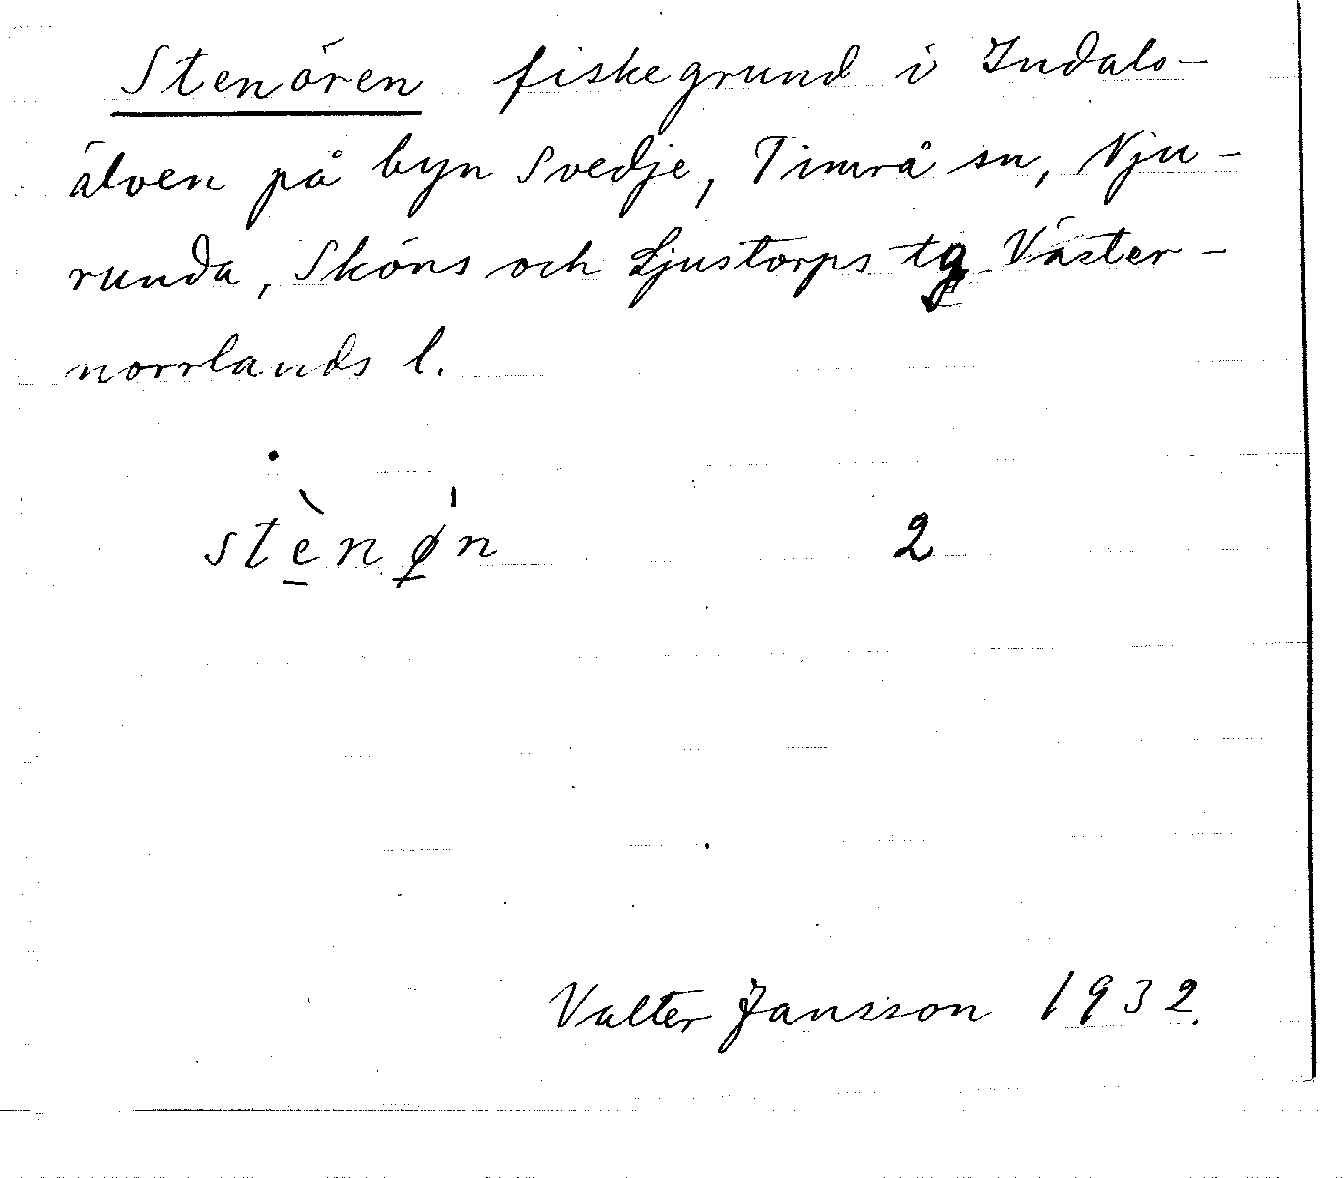 Stenören fiskegrund i Indals-
älven på byn Svedje, Timrå sn, Nju-
runda, Sköns och Ljustorps tg Väster-
norrlands l.
stè̲nǿ̲n 2
Valter Jansson 1932.